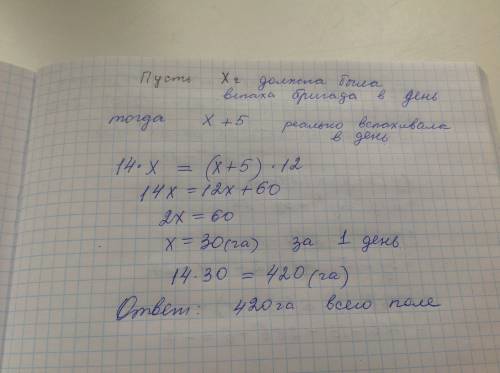 Пусть Xг должна была
вспаха бригада в день
тогда X + 5 реально вспахивала
в день
14·X = (X+5)·12
14X = 12X + 60
2X = 60
X = 30 (га) за 1 день
14·30 = 420 (га)
Ответ: 420 га всего поле